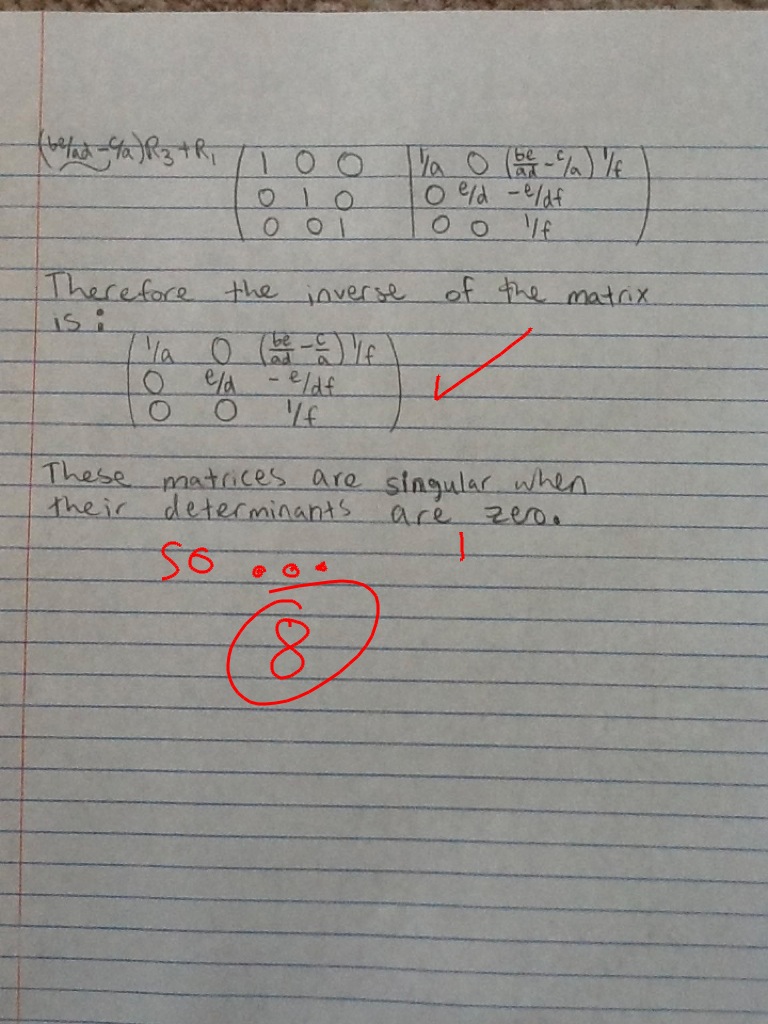 (be/ad - c/a)R3 + R1 ( 1 0 0 | 1/a 0 (be/ad - c/a) 1/f )
( 0 1 0 | 0 e/d -e/df )
( 0 0 1 | 0 0 1/f )
Therefore the inverse of the matrix
is:
( 1/a 0 (be/ad - c/a) 1/f )
( 0 e/d - e/df )
( 0 0 1/f )
These matrices are singular when
their determinants are zero.
so ... 1
8